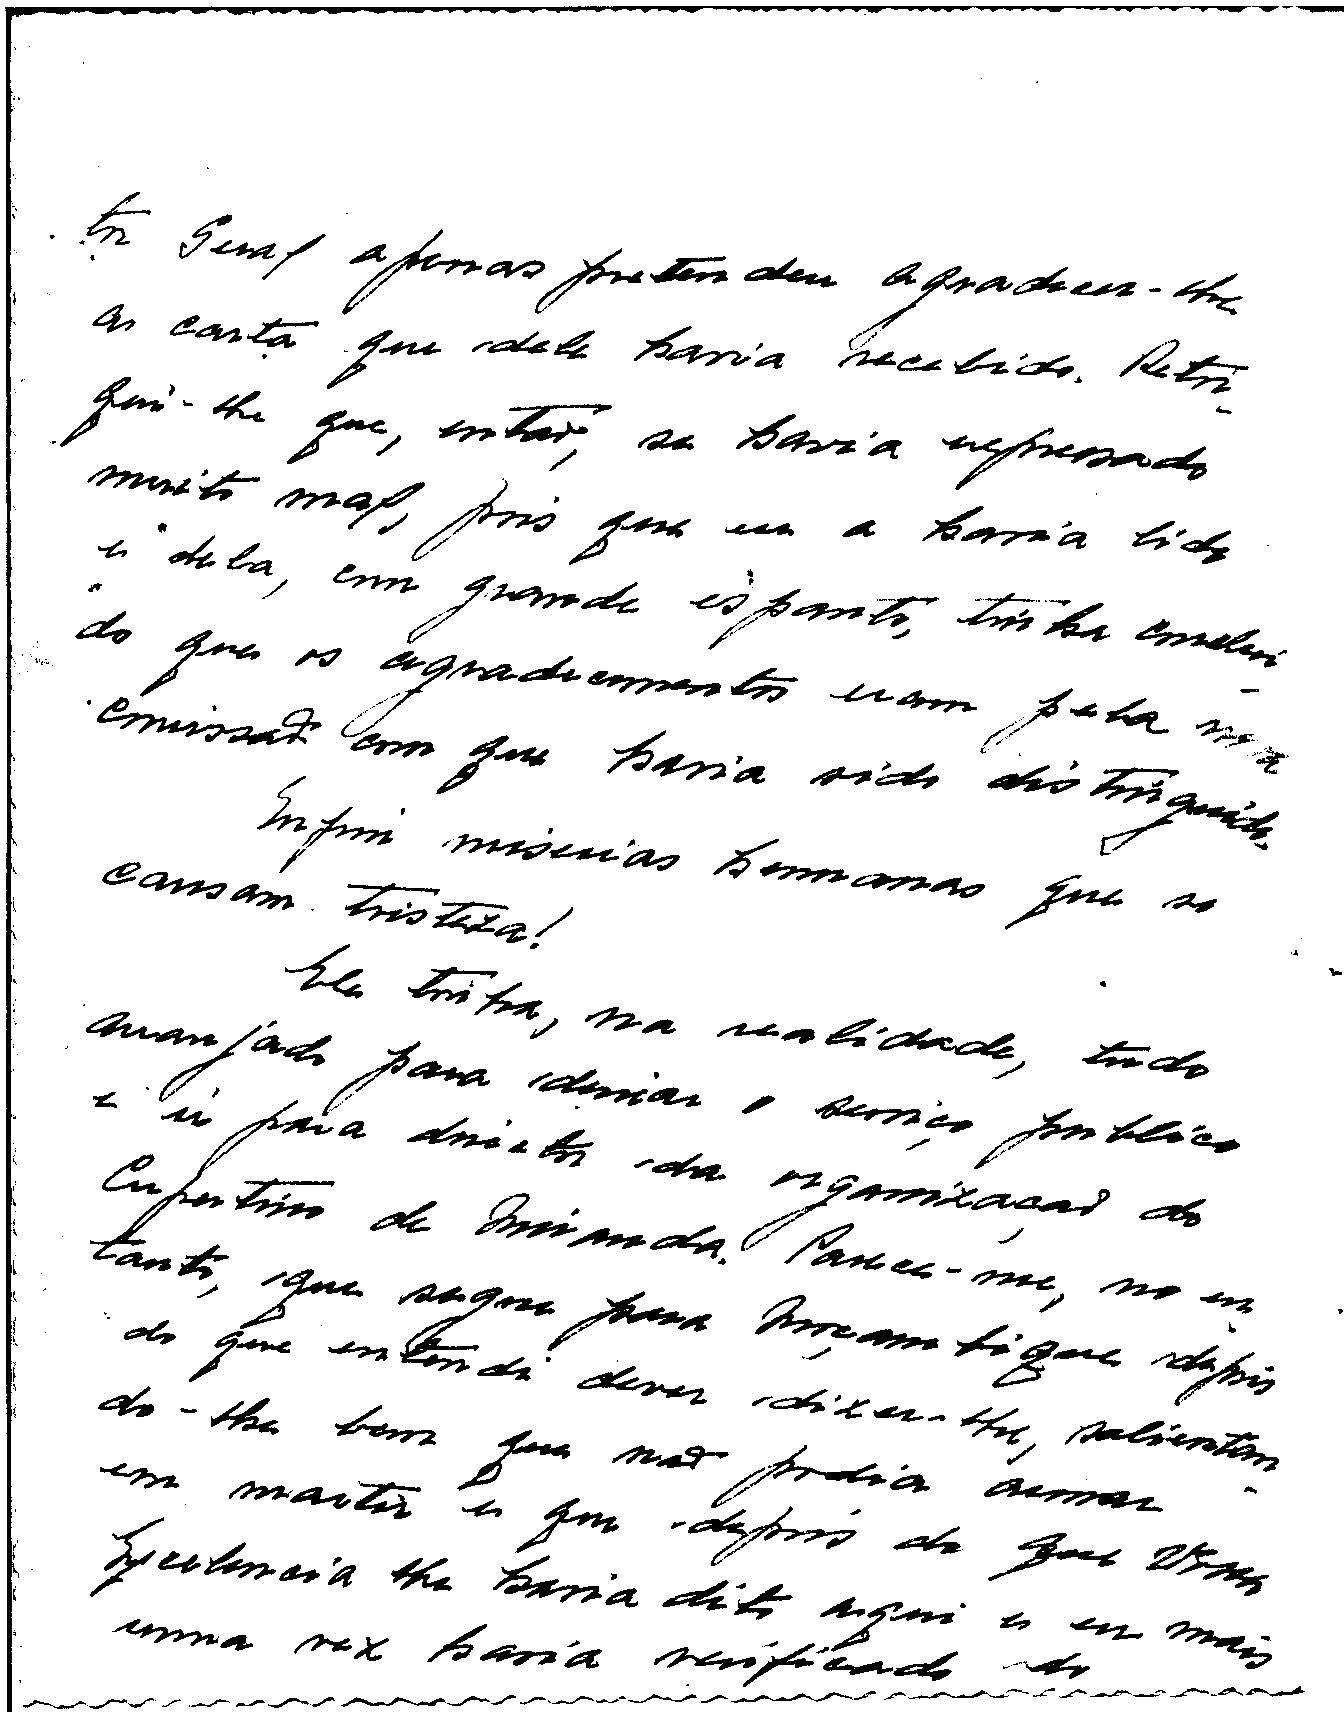 tor Geral apenas pretendeu agradecer-lhe
a carta que dele havia recebido. Retor-
qui-lhe que, então, se havia expressado
muito mal, pois que eu a havia lido
e dela, com grande espanto, tinha conclui-
do que os agradecimentos eram pela nova
comissão com que havia sido distinguido.
Enfim misérias humanas que só
causam tristeza!
Ele tinha, na realidade, tudo
arranjado para deixar o serviço público
e ir para director da organização do
Cupertino de Miranda. Parece-me, no en-
tanto, que segue para Moçambique depois
do que entendi dever dizer-lhe, salientan-
do-lhe bem que não podia armar
em martir e que depois do que Vossa
Excelencia lhe havia dito aqui e eu mais
uma vez havia verificado do